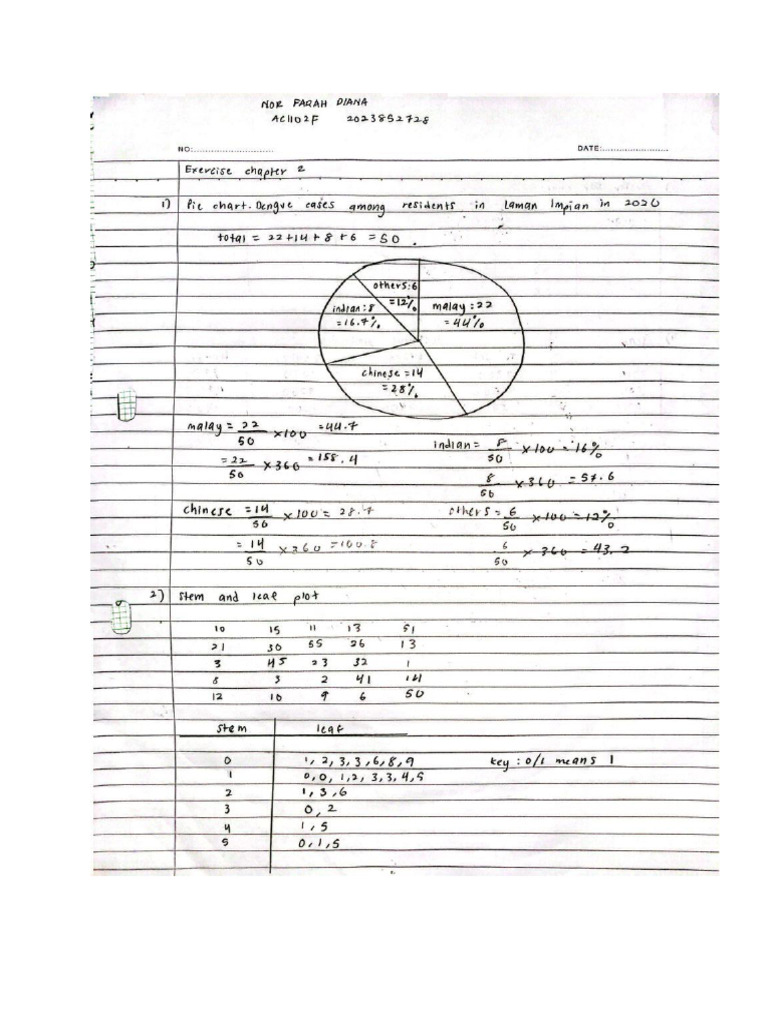 NOR FARAH DIANA
AC1102F 2023852728
NO:............................ DATE:........................
Exercise chapter 2
1) Pie chart. Dengue cases among residents in Laman Impian in 2020
total = 22+14+8+6 = 50.
others:6
=12%
indian:8
=16.7%
malay:22
=44%
chinese=14
=28%
malay = 22/50 x100 =44.7
=22/50 x360 =158.4
indian = 8/50 x100 = 16%
8/50 x360 =57.6
chinese =14/50 x100 = 28.7
=14/50 x360 =100.8
others = 6/50 x100 =12%
6/50 x 360 =43.2
2) stem and leaf plot
10 15 11 13 51
21 30 55 26 13
3 45 23 32 1
8 3 2 41 14
12 10 9 6 50
stem leaf
0 1, 2, 3, 3, 6, 8, 9 key : 0/1 means 1
1 0, 0, 1, 2, 3, 3, 4, 5
2 1, 3, 6
3 0, 2
4 1, 5
5 0, 1, 5